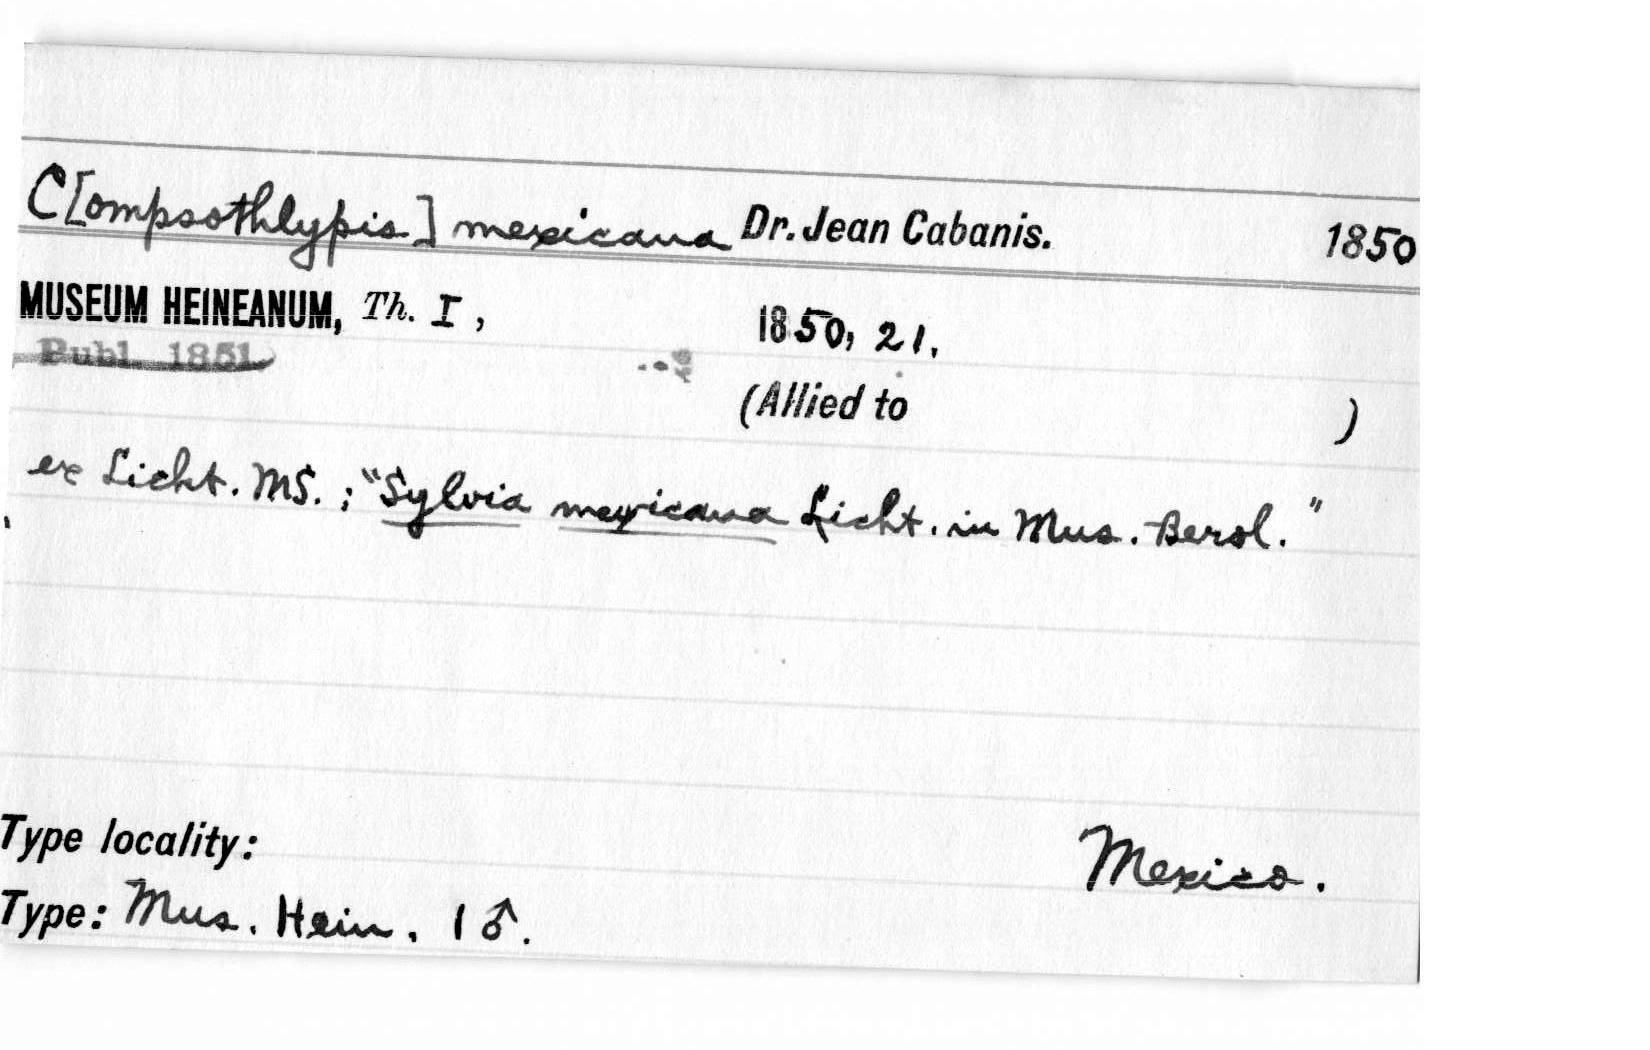 C[ompsothlypis] mexicana Dr. Jean Cabanis. 1850
MUSEUM HEINEANUM, Th. I, 1850, 21.
Publ. 1851
(Allied to )
ex Licht. MS.; "Sylvia mexicana Licht. in Mus. Berol."
Type locality: Mexico.
Type: Mus. Hein. 1 ♂.